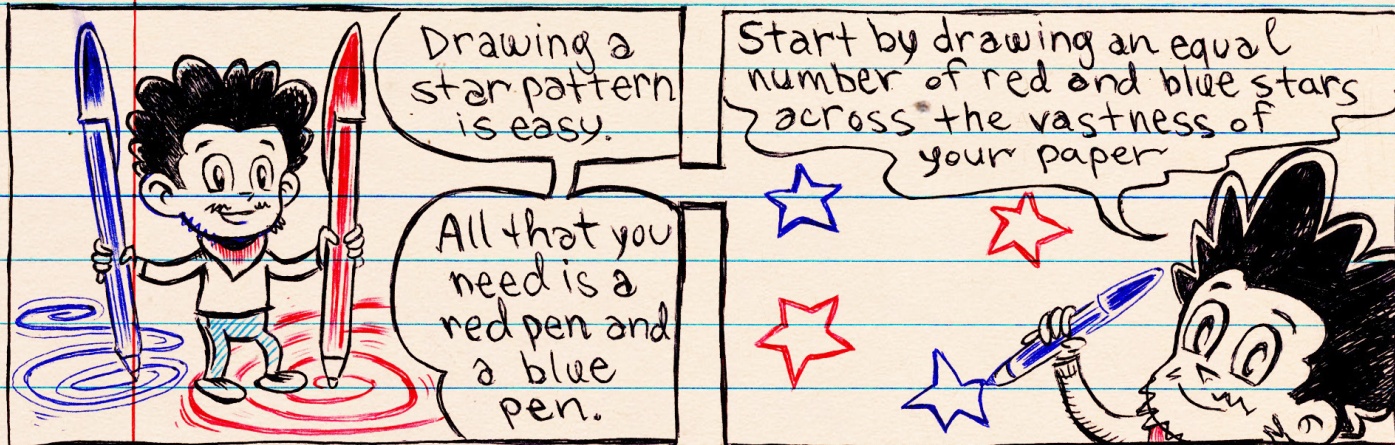 Drawing a
star pattern
is easy.
All that you
need is a
red pen and
a blue
pen.
Start by drawing an equal
number of red and blue stars
across the vastness of
your paper